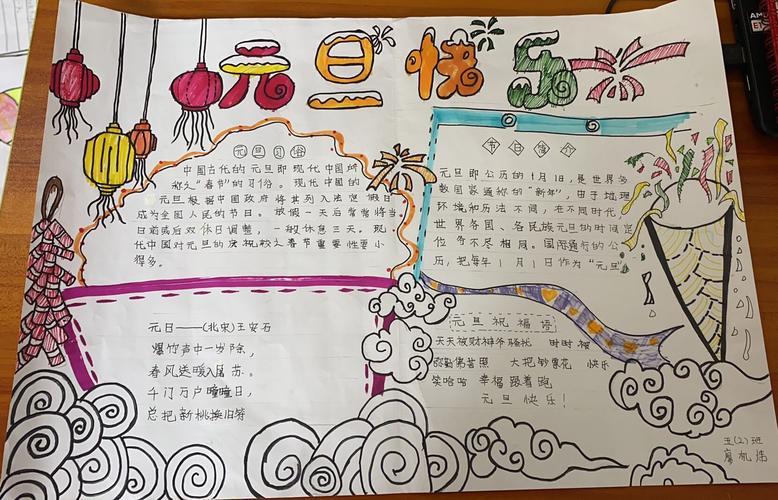 元旦快乐
元旦习俗
中国古代的元旦即现代中国所
称之"春节"的习俗。现代中国的
元旦根据中国政府将其列入法定假日
成为全国人民的节日。放假一天后常常将当
日前或后双休日调整，一般休息三天。现
代中国对元旦的庆祝较之春节重要性要小
得多。
节日简介
元旦即公历的1月1日，是世界多
数国家通称的"新年"，由于地理
环境和历法不同，在不同时代
世界各国、各民族元旦的时间定
位多不尽相同。国际通行的公
历，把每年1月1日作为"元旦"
元日——(北宋)王安石
爆竹声中一岁除，
春风送暖入屠苏。
千门万户曈曈日，
总把新桃换旧符
元旦祝福语
天天被财神爷骚扰 时时被
弥勒佛普照 大把钞票花 快乐
笑哈哈 幸福跟着跑
元旦快乐！
五(2)班